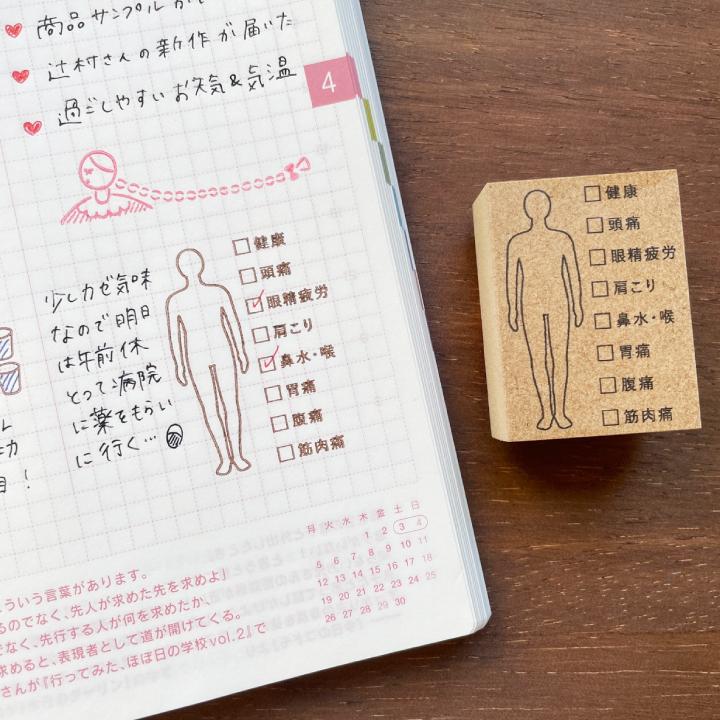 商品サンプルが
辻村さんの新作が届いた
過ごしやすいお天気&気温
4
少しカゼ気味
なので明日
は午前休
とって病院
に薬をもらい
に行く…
目!
健康
頭痛
眼精疲労
肩こり
鼻水・喉
胃痛
腹痛
筋肉痛
月 火 水 木 金 土 日
1 2 3 4
5 6 7 8 9 10 11
12 13 14 15 16 17 18
19 20 21 22 23 24 25
26 27 28 29 30
ういう言葉があります。
るのでなく、先人が求めた先を求めよ」
でなく、先行する人が何を求めたか、
求めると、表現者として道が開けてくる。
さんが『行ってみた、ほぼ日の学校vol.2』で
健康
頭痛
眼精疲労
肩こり
鼻水・喉
胃痛
腹痛
筋肉痛